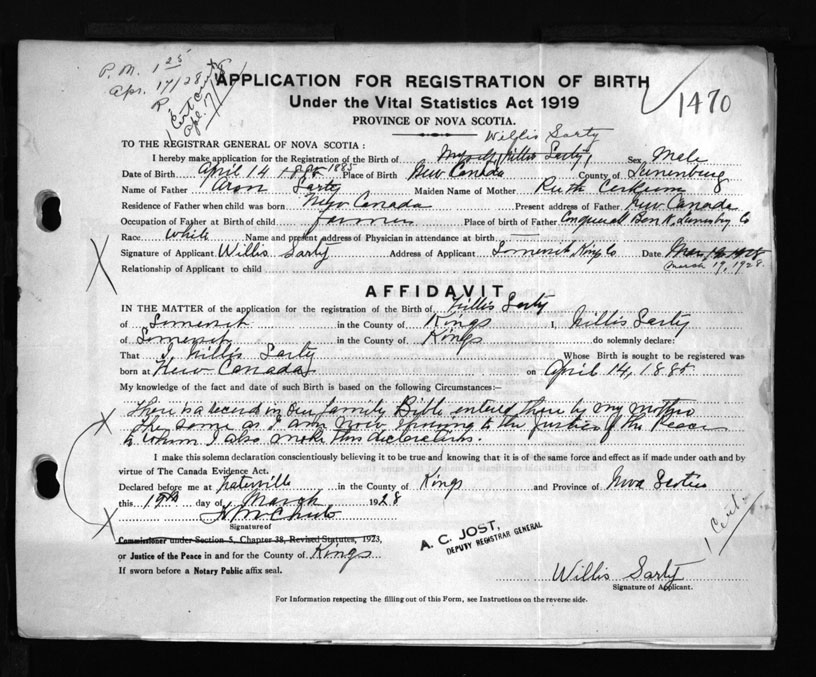 P.M. 1 25
Apr. 17/28
APPLICATION FOR REGISTRATION OF BIRTH
1470
Under the Vital Statistics Act 1919
PROVINCE OF NOVA SCOTIA.
Willis Sarty
TO THE REGISTRAR GENERAL OF NOVA SCOTIA :
I hereby make application for the Registration of the Birth of Myself, Willis Sarty, Sex Male
Date of Birth April 14 1885 1885 Place of Birth New Canada County of Lunenburg
Name of Father Aron Sarty Maiden Name of Mother Ruth
Residence of Father when child was born New Canada Present address of Father New Canada
Occupation of Father at Birth of child farmer Place of birth of Father Lunenburg Co
Race White Name and present address of Physician in attendance at birth
Signature of Applicant Willis Sarty Address of Applicant Somerset Kings Co Date
March 19, 1928.
Relationship of Applicant to child
AFFIDAVIT
IN THE MATTER of the application for the registration of the Birth of Willis Sarty
of Somerset in the County of Kings I, Willis Sarty
of Somerset in the County of Kings do solemnly declare:
That I, Willis Sarty Whose Birth is sought to be registered was
born at New Canada on April 14, 1885
My knowledge of the fact and date of such Birth is based on the following Circumstances:—
There is a record in our family Bible entered there by my mother
The same as I am now to the Justice of the Peace
to whom I also make this declaration.
I make this solemn declaration conscientiously believing it to be true and knowing that it is of the same force and effect as if made under oath and by
virtue of The Canada Evidence Act.
Declared before me at Waterville in the County of Kings and Province of Nova Scotia
this 19th day of March 1928
Signature of
Commissioner under Section 5, Chapter 38, Revised Statutes, 1923,
or Justice of the Peace in and for the County of Kings
If sworn before a Notary Public affix seal.
A. C. JOST,
DEPUTY REGISTRAR GENERAL
1 Cert.
Willis Sarty
Signature of Applicant.
For Information respecting the filling out of this Form, see Instructions on the reverse side.